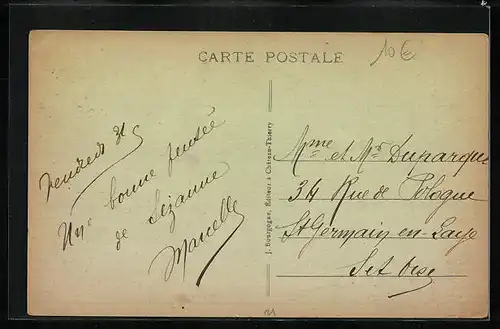 CARTE POSTALE
10€
Vendredi 31
Une bonne pensée
de Sézanne
Marcelle
J. Bourgogne, Éditeur à Château-Thierry
Mme et Mr Duparque
34 Rue de Pologne
St Germain en Laye
Set Oise